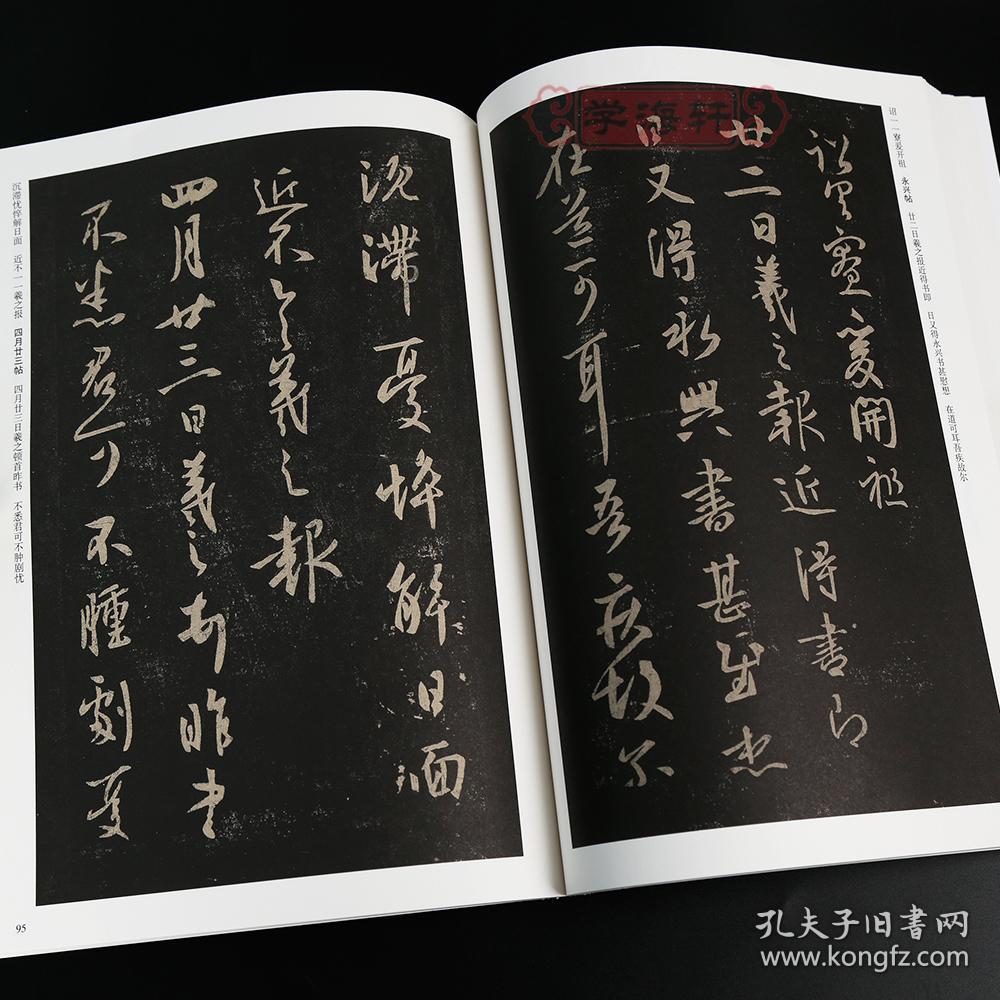 学海轩
诏一一寮爰开祖 永兴帖 廿二日羲之报近得书即 日又得永兴书甚慰想 在道可耳吾疾故尔
爰開祖
廿二日羲之報近得書即
日又得永興書甚慰想
在道可耳吾疾故尔
沉滞憂悴解日面
近不一一羲之報
四月廿三日羲之頓首昨書
不悉君可不腫劇憂
沉滞忧悴解日面 近不一一羲之报 四月廿三帖 四月廿三日羲之顿首昨书 不悉君可不肿剧忧
95
孔夫子旧書网
www.kongfz.com